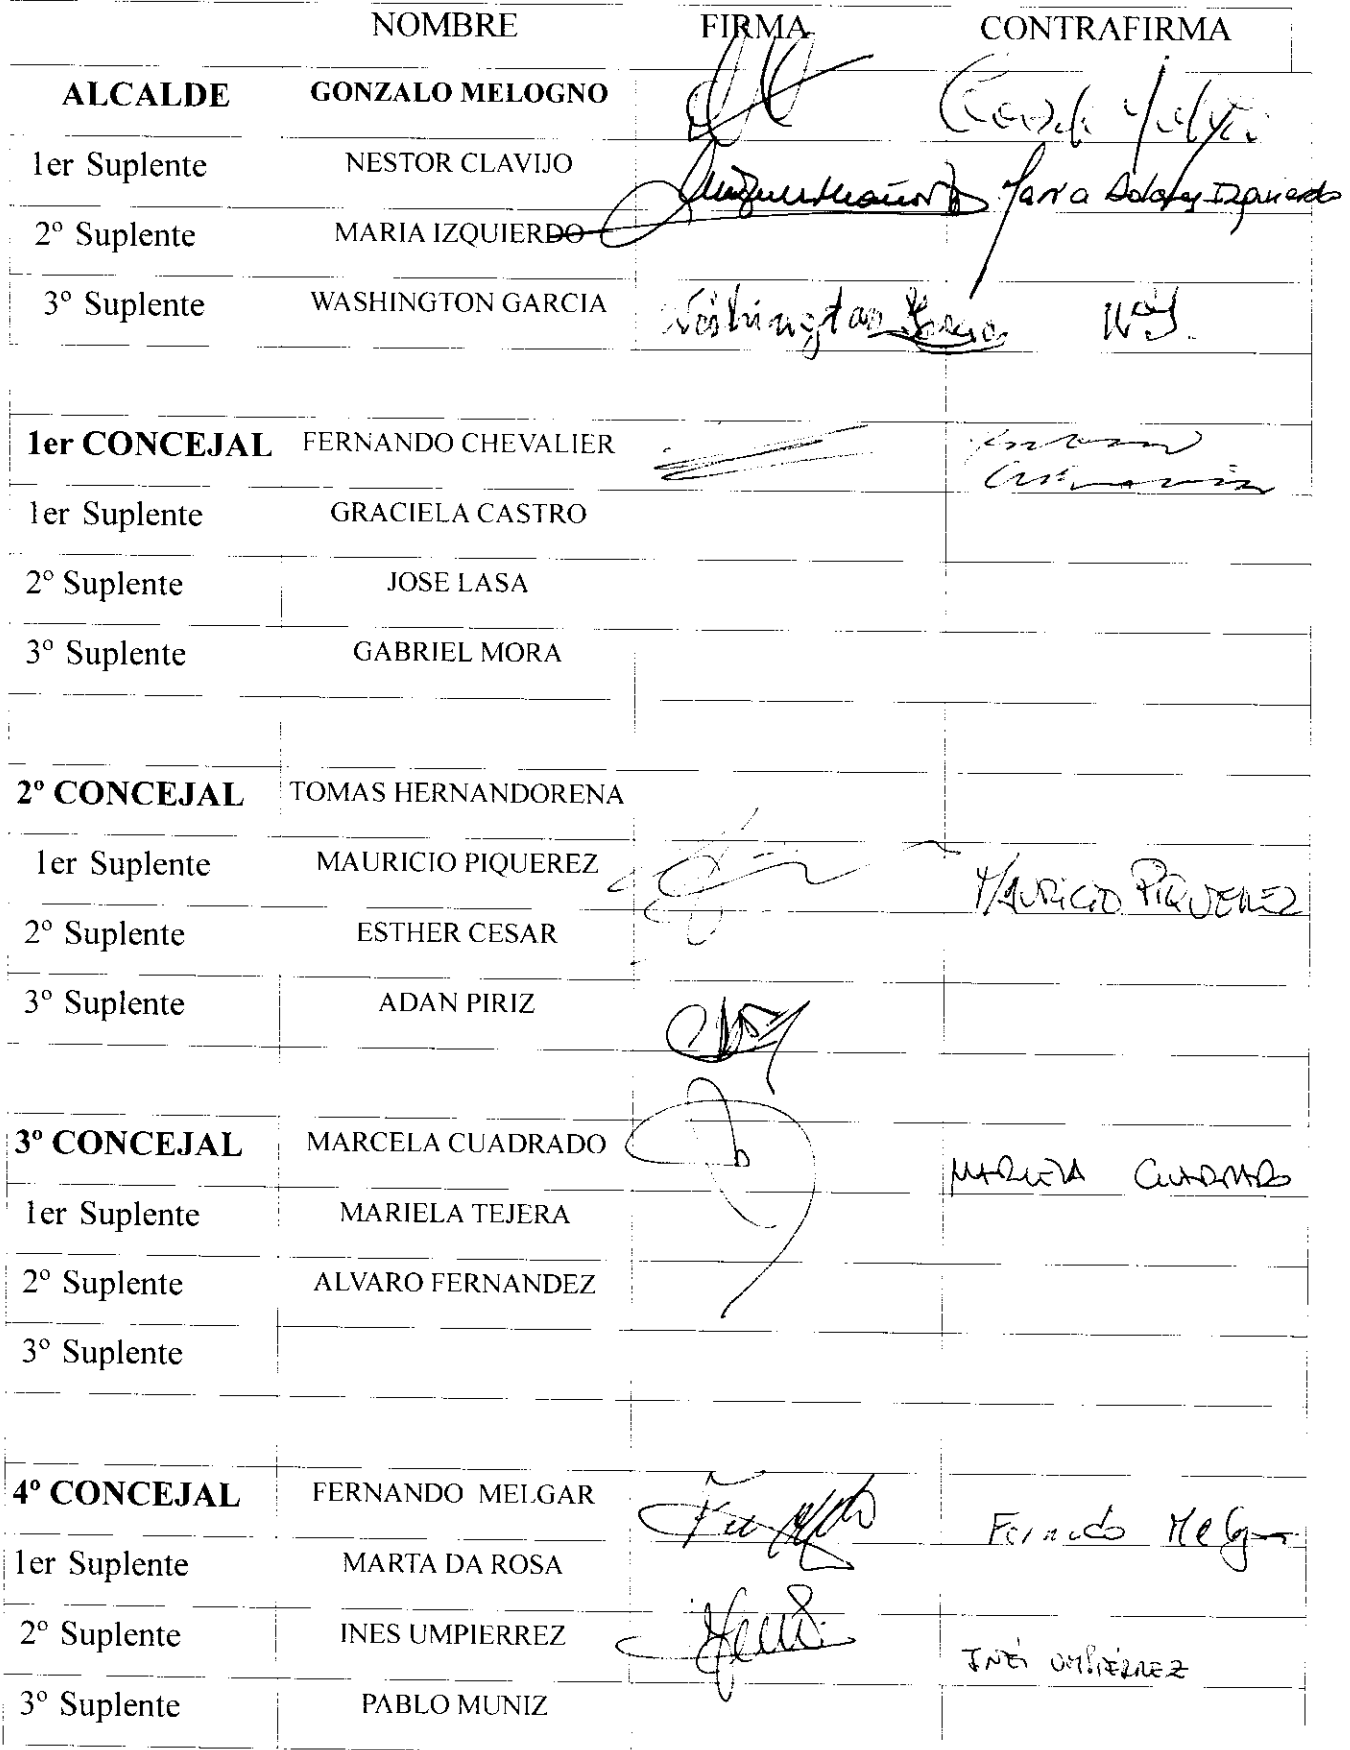 NOMBRE FIRMA CONTRAFIRMA
ALCALDE GONZALO MELOGNO
1er Suplente NESTOR CLAVIJO
2º Suplente MARIA IZQUIERDO Maria Dolores Izquierdo
3º Suplente WASHINGTON GARCIA Washington Garcia
1er CONCEJAL FERNANDO CHEVALIER
1er Suplente GRACIELA CASTRO
2º Suplente JOSE LASA
3º Suplente GABRIEL MORA
2º CONCEJAL TOMAS HERNANDORENA
1er Suplente MAURICIO PIQUEREZ MAURICIO PIQUEREZ
2º Suplente ESTHER CESAR
3º Suplente ADAN PIRIZ
3º CONCEJAL MARCELA CUADRADO MARCELA CUADRADO
1er Suplente MARIELA TEJERA
2º Suplente ALVARO FERNANDEZ
3º Suplente
4º CONCEJAL FERNANDO MELGAR Fernando Melgar
1er Suplente MARTA DA ROSA
2º Suplente INES UMPIERREZ INÉS UMPIÉRREZ
3º Suplente PABLO MUNIZ